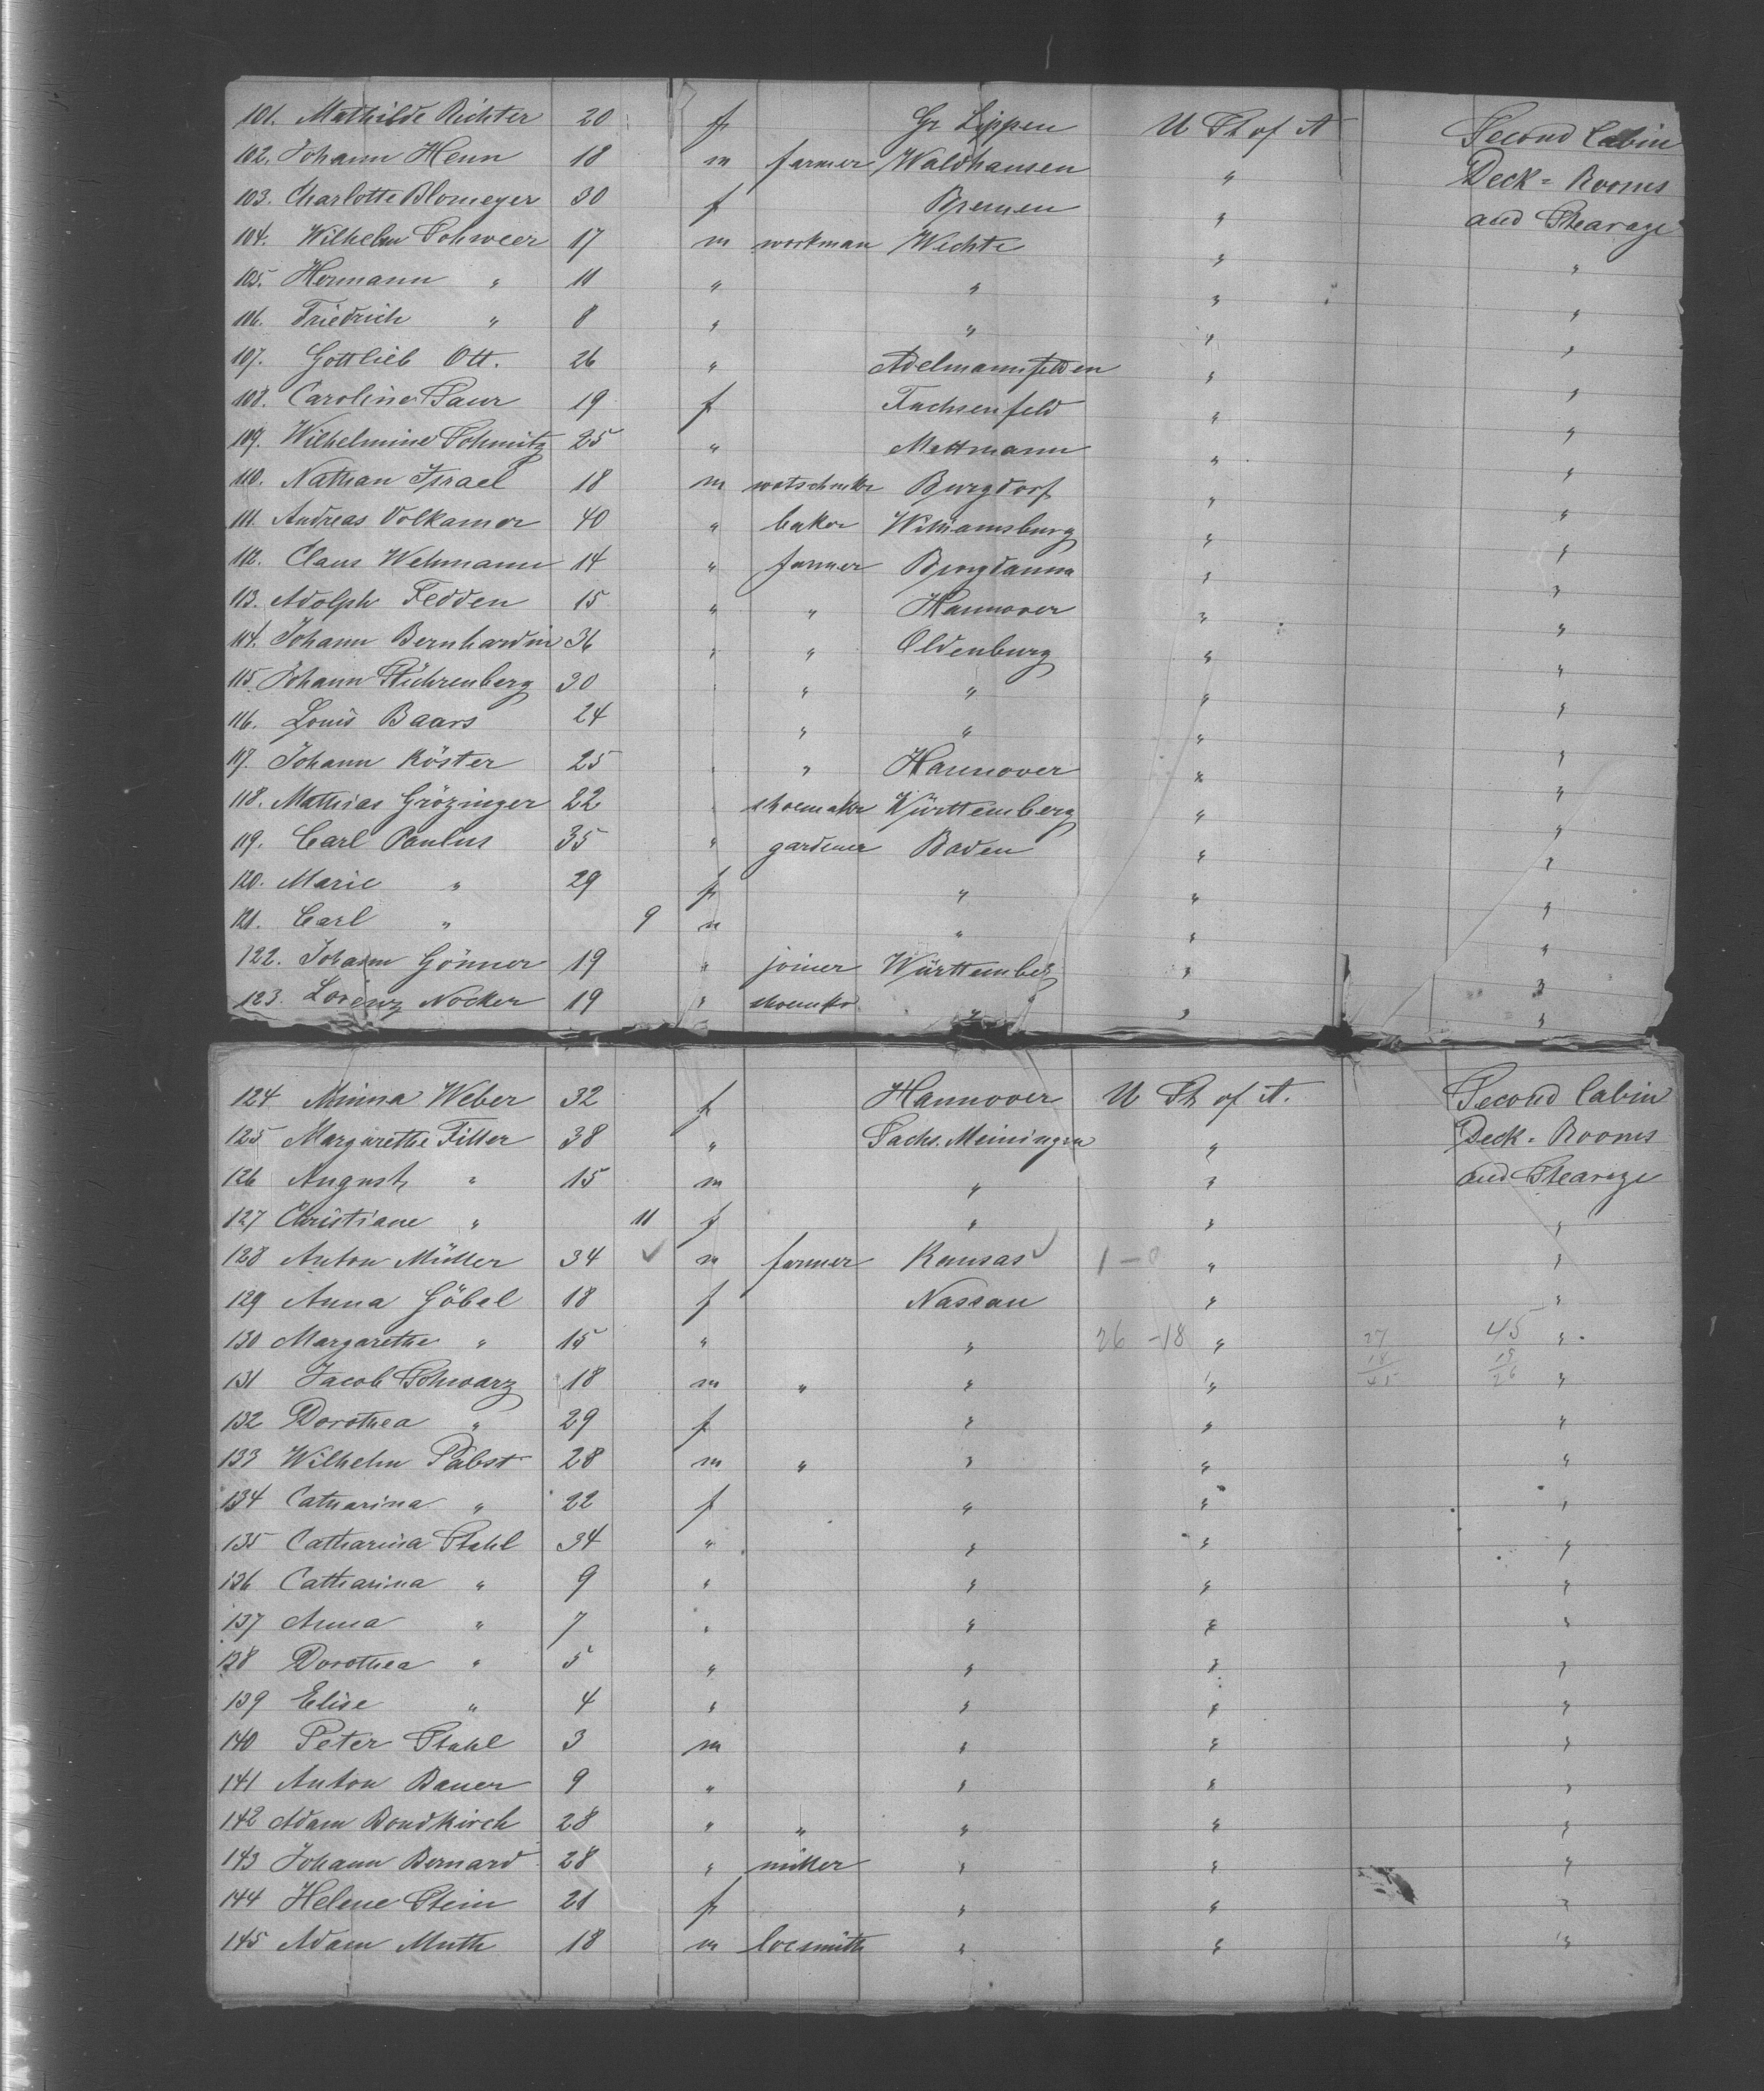 101. Mathilde Richter 20 f Gr Lippen U St of A Second Cabin
102. Johann Henn 18 m farmer Waldhausen " Deck = Rooms
103. Charlotte Blomeyer 30 f Bremen " and Stearage
104. Wilhelm Schweer 17 m workman Wechte " "
105. Hermann " 11 " " " "
106. Friedrich " 8 " " " "
107. Gottlieb Ott. 26 " Adelmannsfelden " "
108. Caroline Saur 19 f Fachsenfeld " "
109. Wilhelmine Schmitz 25 " Mettmann " "
110. Nathan Israel 18 m Burgdorf " "
111. Andreas Volkamer 40 " baker Williamsburg " "
112. Claus Wehmann 14 " farmer " "
113. Adolph Fedden 15 " " Hannover " "
114. Johann Bernhardin 36 " " Oldenburg " "
115. Johann Stührenberg 30 " " " " "
116. Louis Baars 24 " " " "
117. Johann Köster 25 " " Hannover " "
118. Mathias Grözinger 22 " shoemaker Württemberg " "
119. Carl Paulus 35 " gardener Baden " "
120. Marie " 29 f " " "
121. Carl " 9 m " " "
122. Johann Gönner 19 " joiner Württembg " "
123. Lorenz Nocker 19 " shoemkr " " "
124 Minna Weber 32 f Hannover U St of A. Second Cabin
125 Margarethe Filler 38 " Sachs. Meiningen " Deck = Rooms
126 August " 15 m " " and Stearage
127 Christiane " 11 f " " "
128 Anton Müller 34 ✓ m farmer Kansas ✓ 1 - 0 " "
129 Anna Göbel 18 f Nassau " "
130 Margarethe " 15 " " 26 - 18 " 27 45 "
131 Jacob Schwarz 18 m " " " 18 45 19 26 "
132 Dorothea " 29 f " " "
133 Wilhelm Pabst 28 m " " " "
134 Catharina " 22 f " " "
135 Catharina Stahl 34 " " " "
136 Catharina " 9 " " " "
137 Anna " 7 " " " "
138 Dorothea " 5 " " " "
139 Elise " 4 " " " "
140 Peter Stahl 3 m " " "
141 Anton Bauer 9 " " " "
142 Adam Bondkirch 28 " " " " "
143 Johann Bernard 28 " miller " " "
144 Helene Stein 21 f " " "
145 Adam Muth 18 m locsmith " " "